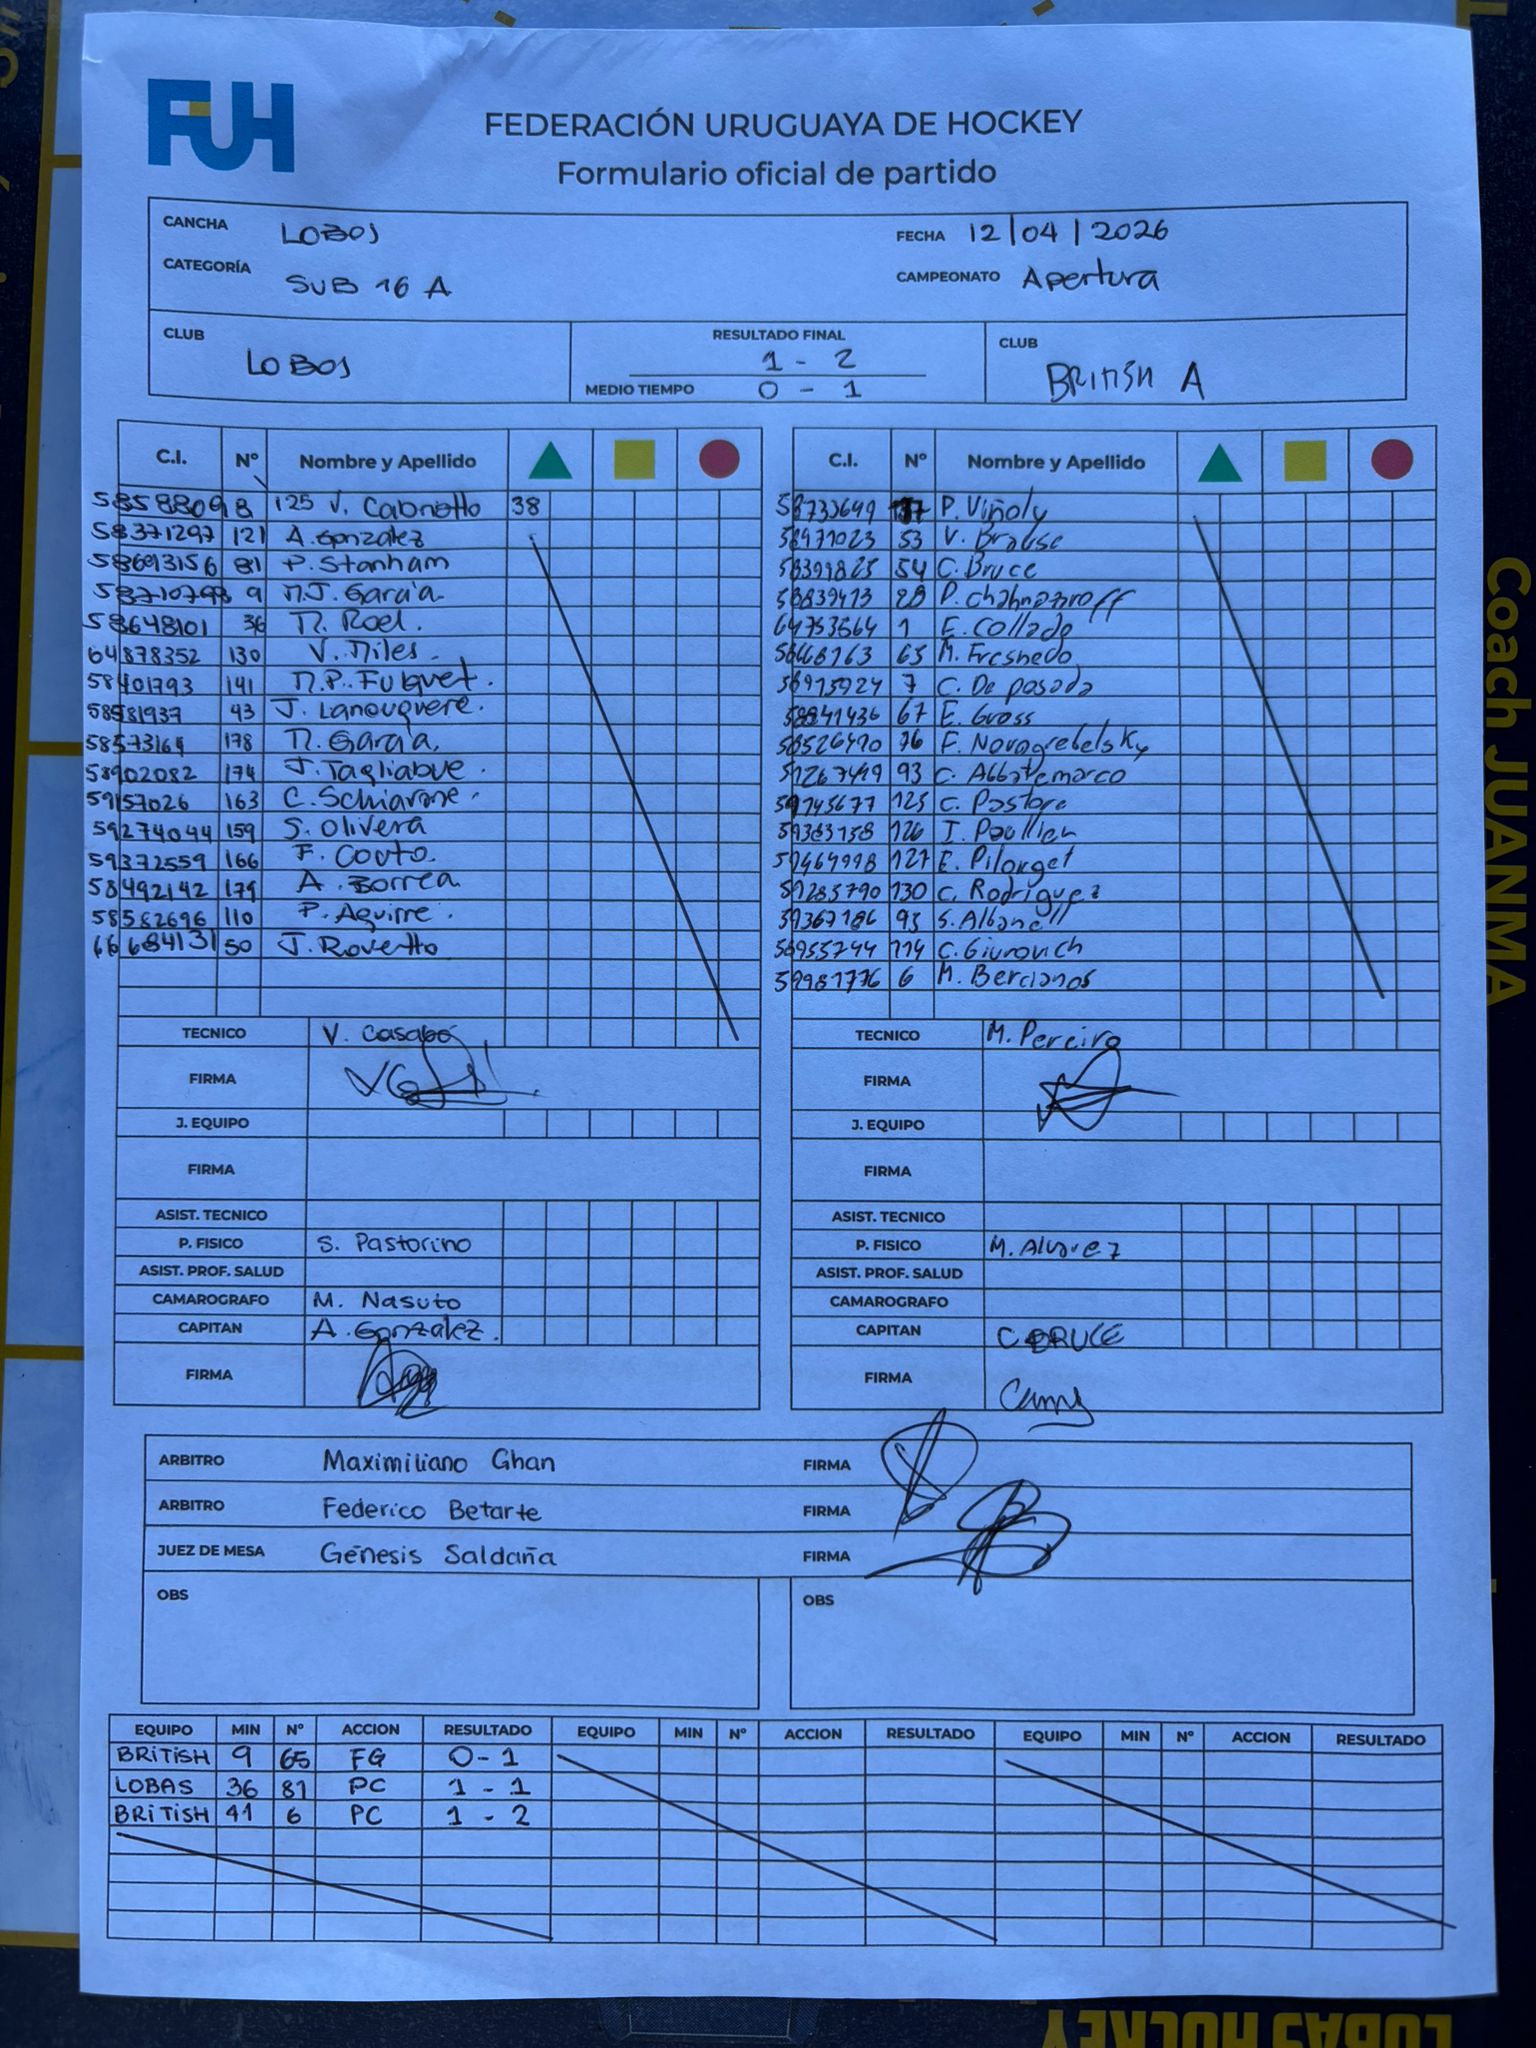 FUH
FEDERACIÓN URUGUAYA DE HOCKEY
Formulario oficial de partido
CANCHA LOBOS FECHA 12/04/2026
CATEGORÍA SUB 16 A CAMPEONATO Apertura
CLUB LOBOS RESULTADO FINAL 1 - 2 CLUB BRITISH A
MEDIO TIEMPO 0 - 1
C.I. Nº Nombre y Apellido C.I. Nº Nombre y Apellido
58588098 125 V. Cabriotto 38
58371297 121 A. Gonzalez
58693156 81 P. Stanham
58710793 9 M.J. Garcia
58648101 36 M. Roel.
64878352 130 V. Miles.
58401793 141 M.P. Fulquet.
58581937 43 J. Lanouguere.
58573164 178 M. Garcia.
58902082 174 J. Tagliabue.
59157026 163 C. Schiavone.
59274044 159 S. Olivera
59372559 166 F. Couto.
58492142 179 A. Borrea
58582696 110 P. Aguirre.
66684131 50 J. Rovetto
58733649 P. Viñoly
58971023 53 V. Brause
58399825 54 C. Bruce
58839413 28 P. Chahnazaroff
64753564 1 E. Collado
58668163 65 M. Fresnedo
58915924 7 C. De posada
58841436 67 E. Gross
58526490 76 F. Novogrebelsky
51267499 93 C. Abbatemarco
59145677 125 C. Pastore
59383158 126 I. Paullier
59464998 127 E. Pilorget
59285790 130 C. Rodriguez
59367186 95 S. Albanell
58955744 114 C. Giurovich
59981776 6 M. Bercianos
TECNICO V. Casabó TECNICO M. Pereira
FIRMA FIRMA
J. EQUIPO J. EQUIPO
FIRMA FIRMA
ASIST. TECNICO ASIST. TECNICO
P. FISICO S. Pastorino P. FISICO M. Alvarez
ASIST. PROF. SALUD ASIST. PROF. SALUD
CAMAROGRAFO M. Nasuto CAMAROGRAFO
CAPITAN A. Gonzalez. CAPITAN C BRUCE
FIRMA FIRMA
ARBITRO Maximiliano Ghan FIRMA
ARBITRO Federico Betarte FIRMA
JUEZ DE MESA Génesis Saldaña FIRMA
OBS OBS
EQUIPO MIN Nº ACCION RESULTADO EQUIPO MIN Nº ACCION RESULTADO EQUIPO MIN Nº ACCION RESULTADO
BRITISH 9 65 FG 0-1
LOBAS 36 81 PC 1 - 1
BRITISH 41 6 PC 1 - 2
Coach JUANMA
LOBAS HOCKEY